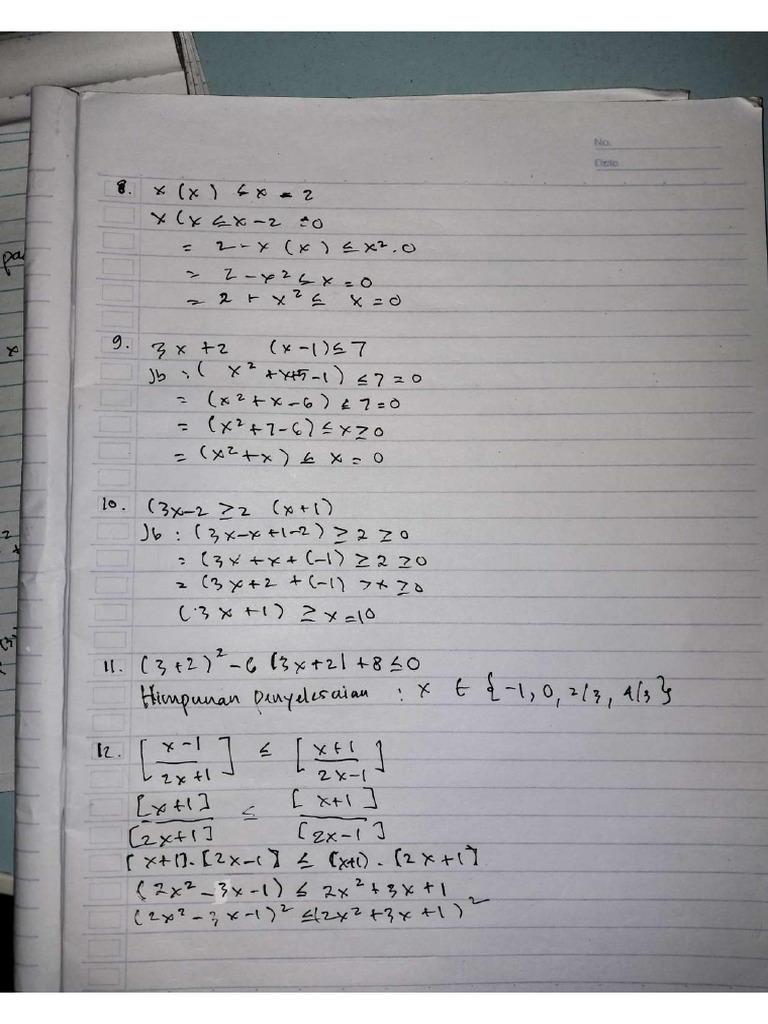 No.
Date
8. x (x) ≤ x - 2
x (x ≤ x - 2 ≥ 0
= 2 - x (x) ≤ x². 0
= 2 - x² ≤ x = 0
= 2 + x² ≤ x = 0
9. 3x + 2 (x - 1) ≤ 7
Jb : ( x² + x+5 - 1) ≤ 7 = 0
= (x² + x - 6) ≤ 7 = 0
= (x² + 7 - 6) ≤ x ≥ 0
= (x² + x) ≤ x = 0
10. (3x - 2 ≥ 2 (x + 1)
Jb : (3x - x + 1 - 2) ≥ 2 ≥ 0
= (3x + x + (-1) ≥ 2 ≥ 0
= (3x + 2 + (-1) > x ≥ 0
(3x + 1) ≥ x = 10
11. (3 + 2)² - 6 (3x + 2) + 8 ≤ 0
Himpunan Penyelesaian : x ∈ {-1, 0, 2/3, 4/3}
12. [x - 1 / 2x + 1] ≤ [x + 1 / 2x - 1]
[x + 1] / [2x + 1] ≤ [x + 1] / [2x - 1]
[x + 1]. [2x - 1] ≤ [x+1) . [2x + 1]
(2x² - 3x - 1) ≤ 2x² + 3x + 1
(2x² - 3x - 1)² ≤ (2x² + 3x + 1)²